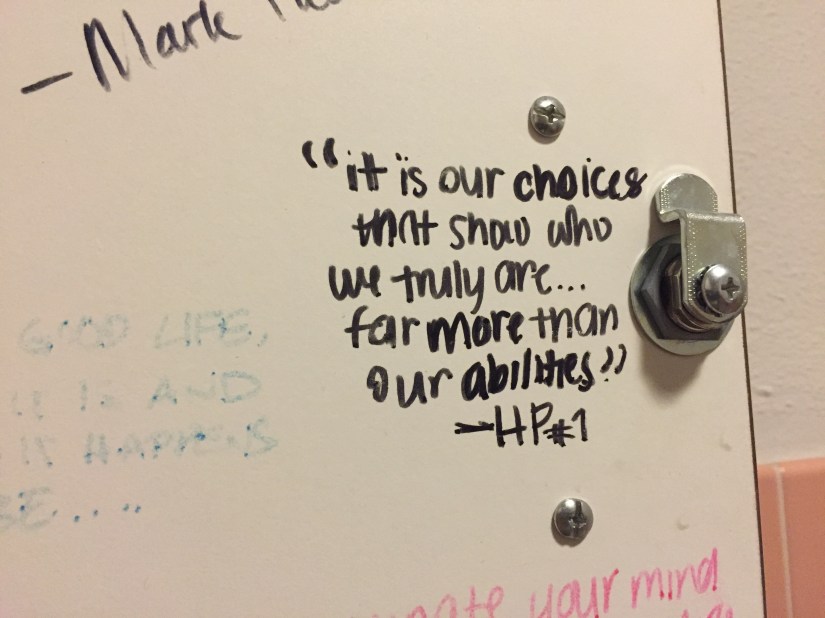 — Mark
“it is our choices
that show who
we truly are...
far more than
our abilities”
—HP#1
GOOD LIFE,
IT IS AND
IT HAPPENS
BE.....
your mind